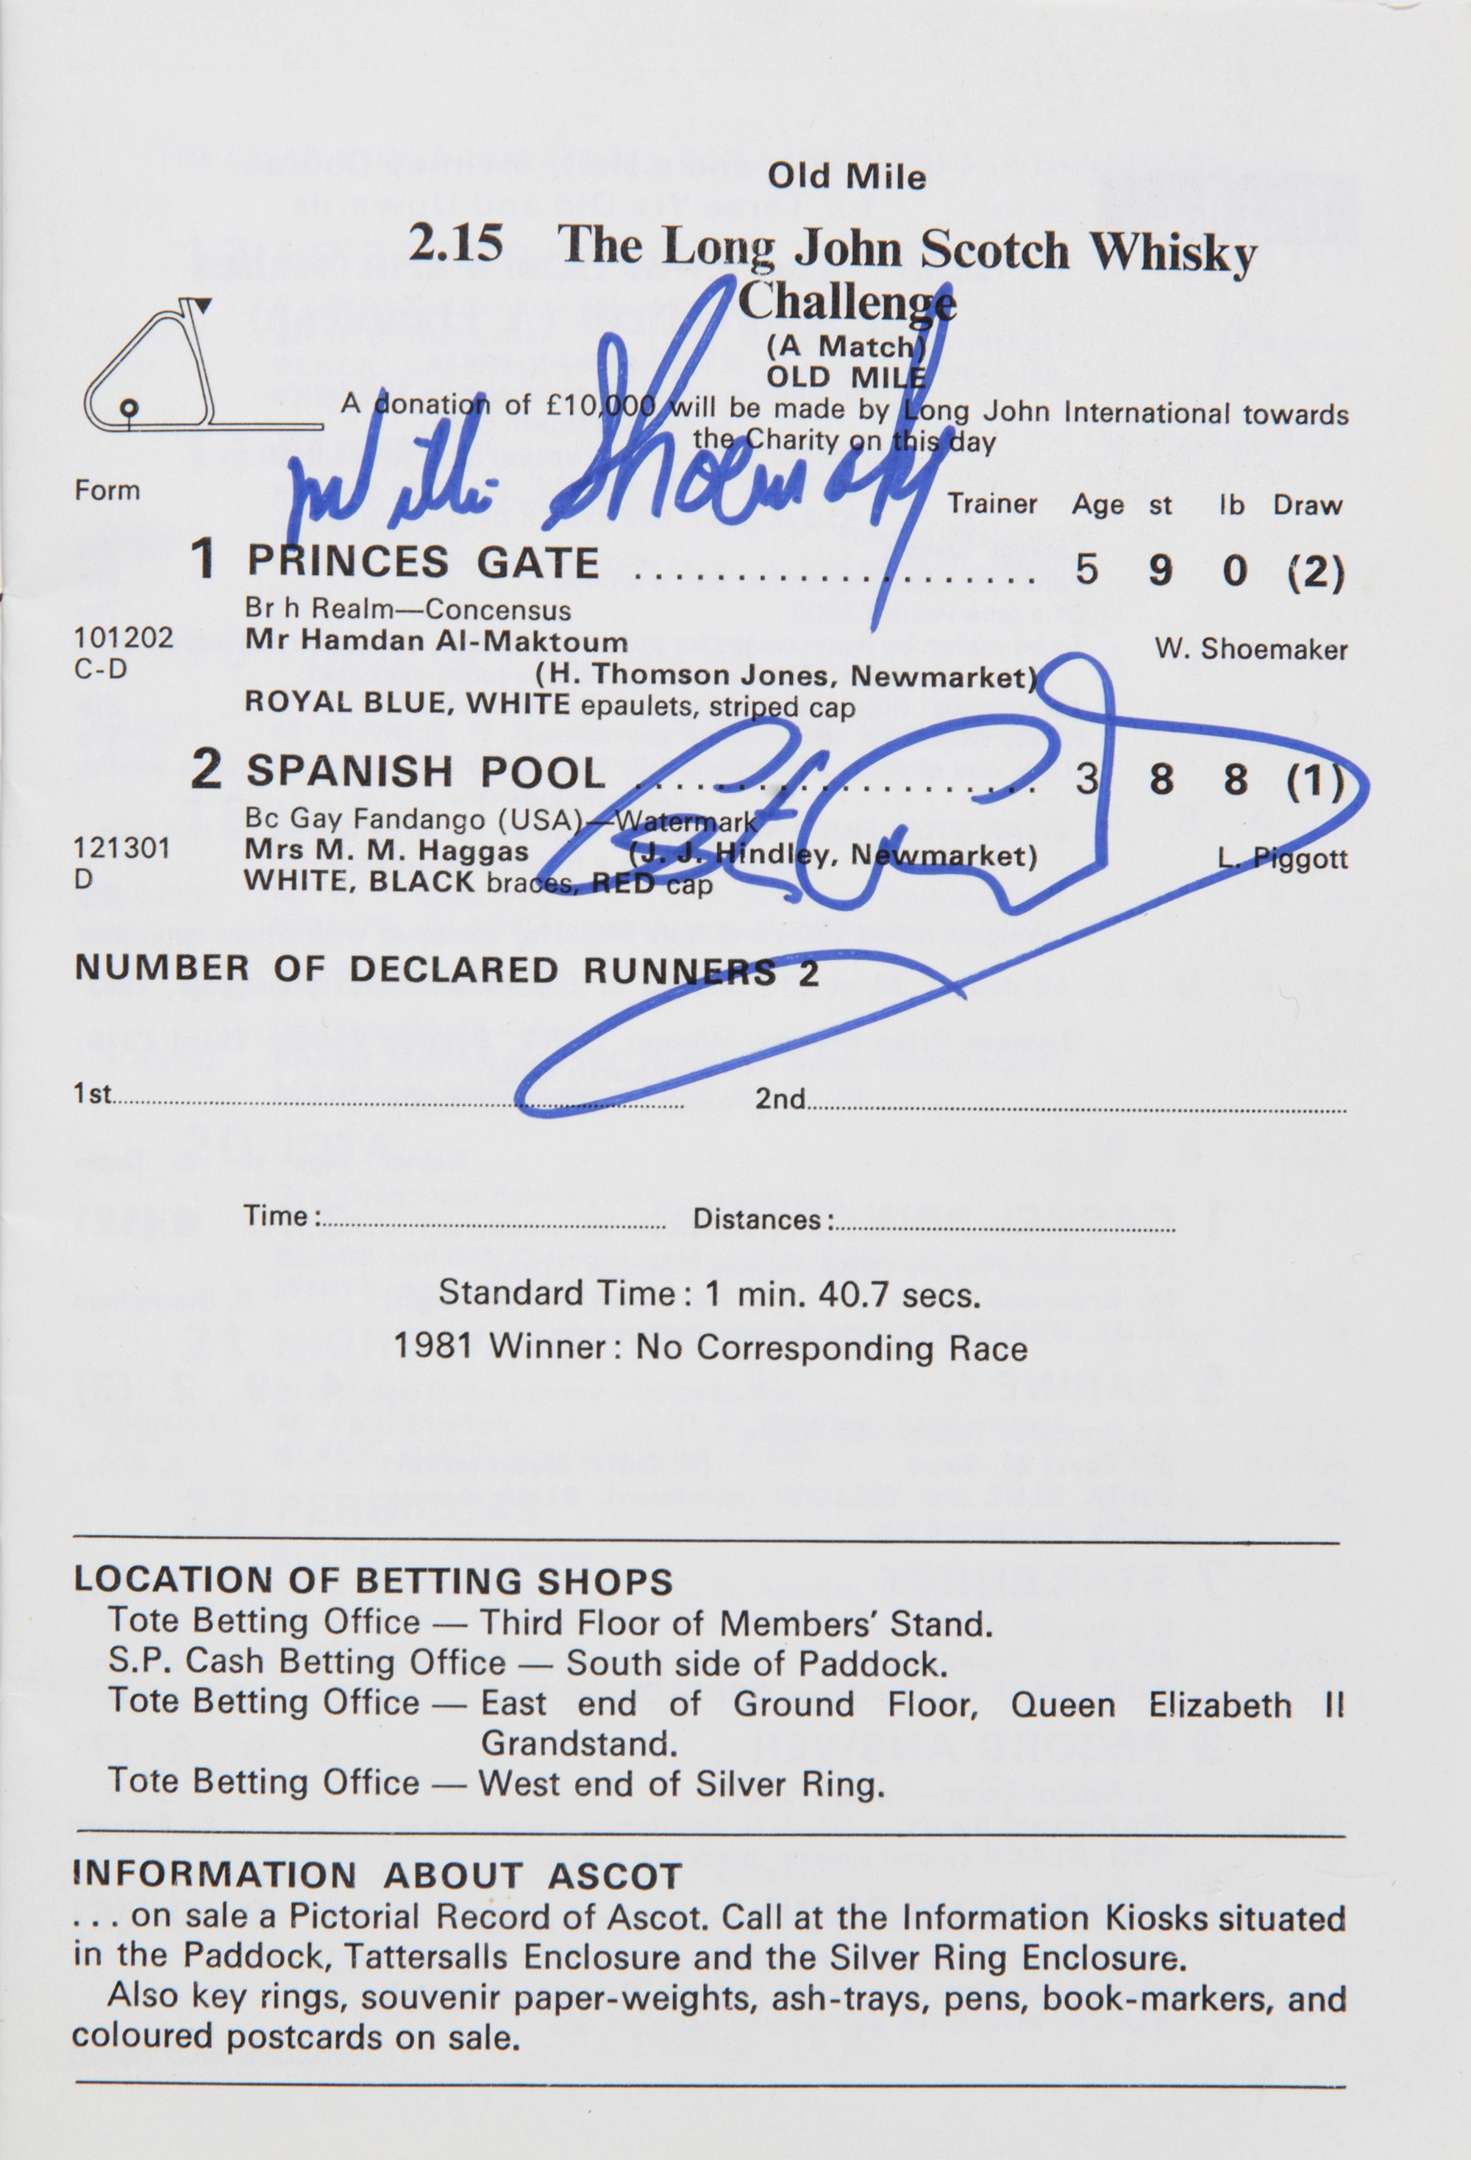 Old Mile
2.15 The Long John Scotch Whisky
Challenge
(A Match)
OLD MILE
A donation of £10,000 will be made by Long John International towards
the Charity on this day
Willie Shoemaker
Form Trainer Age st lb Draw
1 PRINCES GATE .................... 5 9 0 (2)
Br h Realm—Concensus
101202 Mr Hamdan Al-Maktoum W. Shoemaker
C-D (H. Thomson Jones, Newmarket)
ROYAL BLUE, WHITE epaulets, striped cap
2 SPANISH POOL .................... 3 8 8 (1)
Bc Gay Fandango (USA)—Watermark
121301 Mrs M. M. Haggas (J. J. Hindley, Newmarket) L. Piggott
D WHITE, BLACK braces, RED cap
NUMBER OF DECLARED RUNNERS 2
1st.................... 2nd....................
Time:.................... Distances:....................
Standard Time: 1 min. 40.7 secs.
1981 Winner: No Corresponding Race
LOCATION OF BETTING SHOPS
Tote Betting Office — Third Floor of Members' Stand.
S.P. Cash Betting Office — South side of Paddock.
Tote Betting Office — East end of Ground Floor, Queen Elizabeth II
Grandstand.
Tote Betting Office — West end of Silver Ring.
INFORMATION ABOUT ASCOT
... on sale a Pictorial Record of Ascot. Call at the Information Kiosks situated
in the Paddock, Tattersalls Enclosure and the Silver Ring Enclosure.
Also key rings, souvenir paper-weights, ash-trays, pens, book-markers, and
coloured postcards on sale.